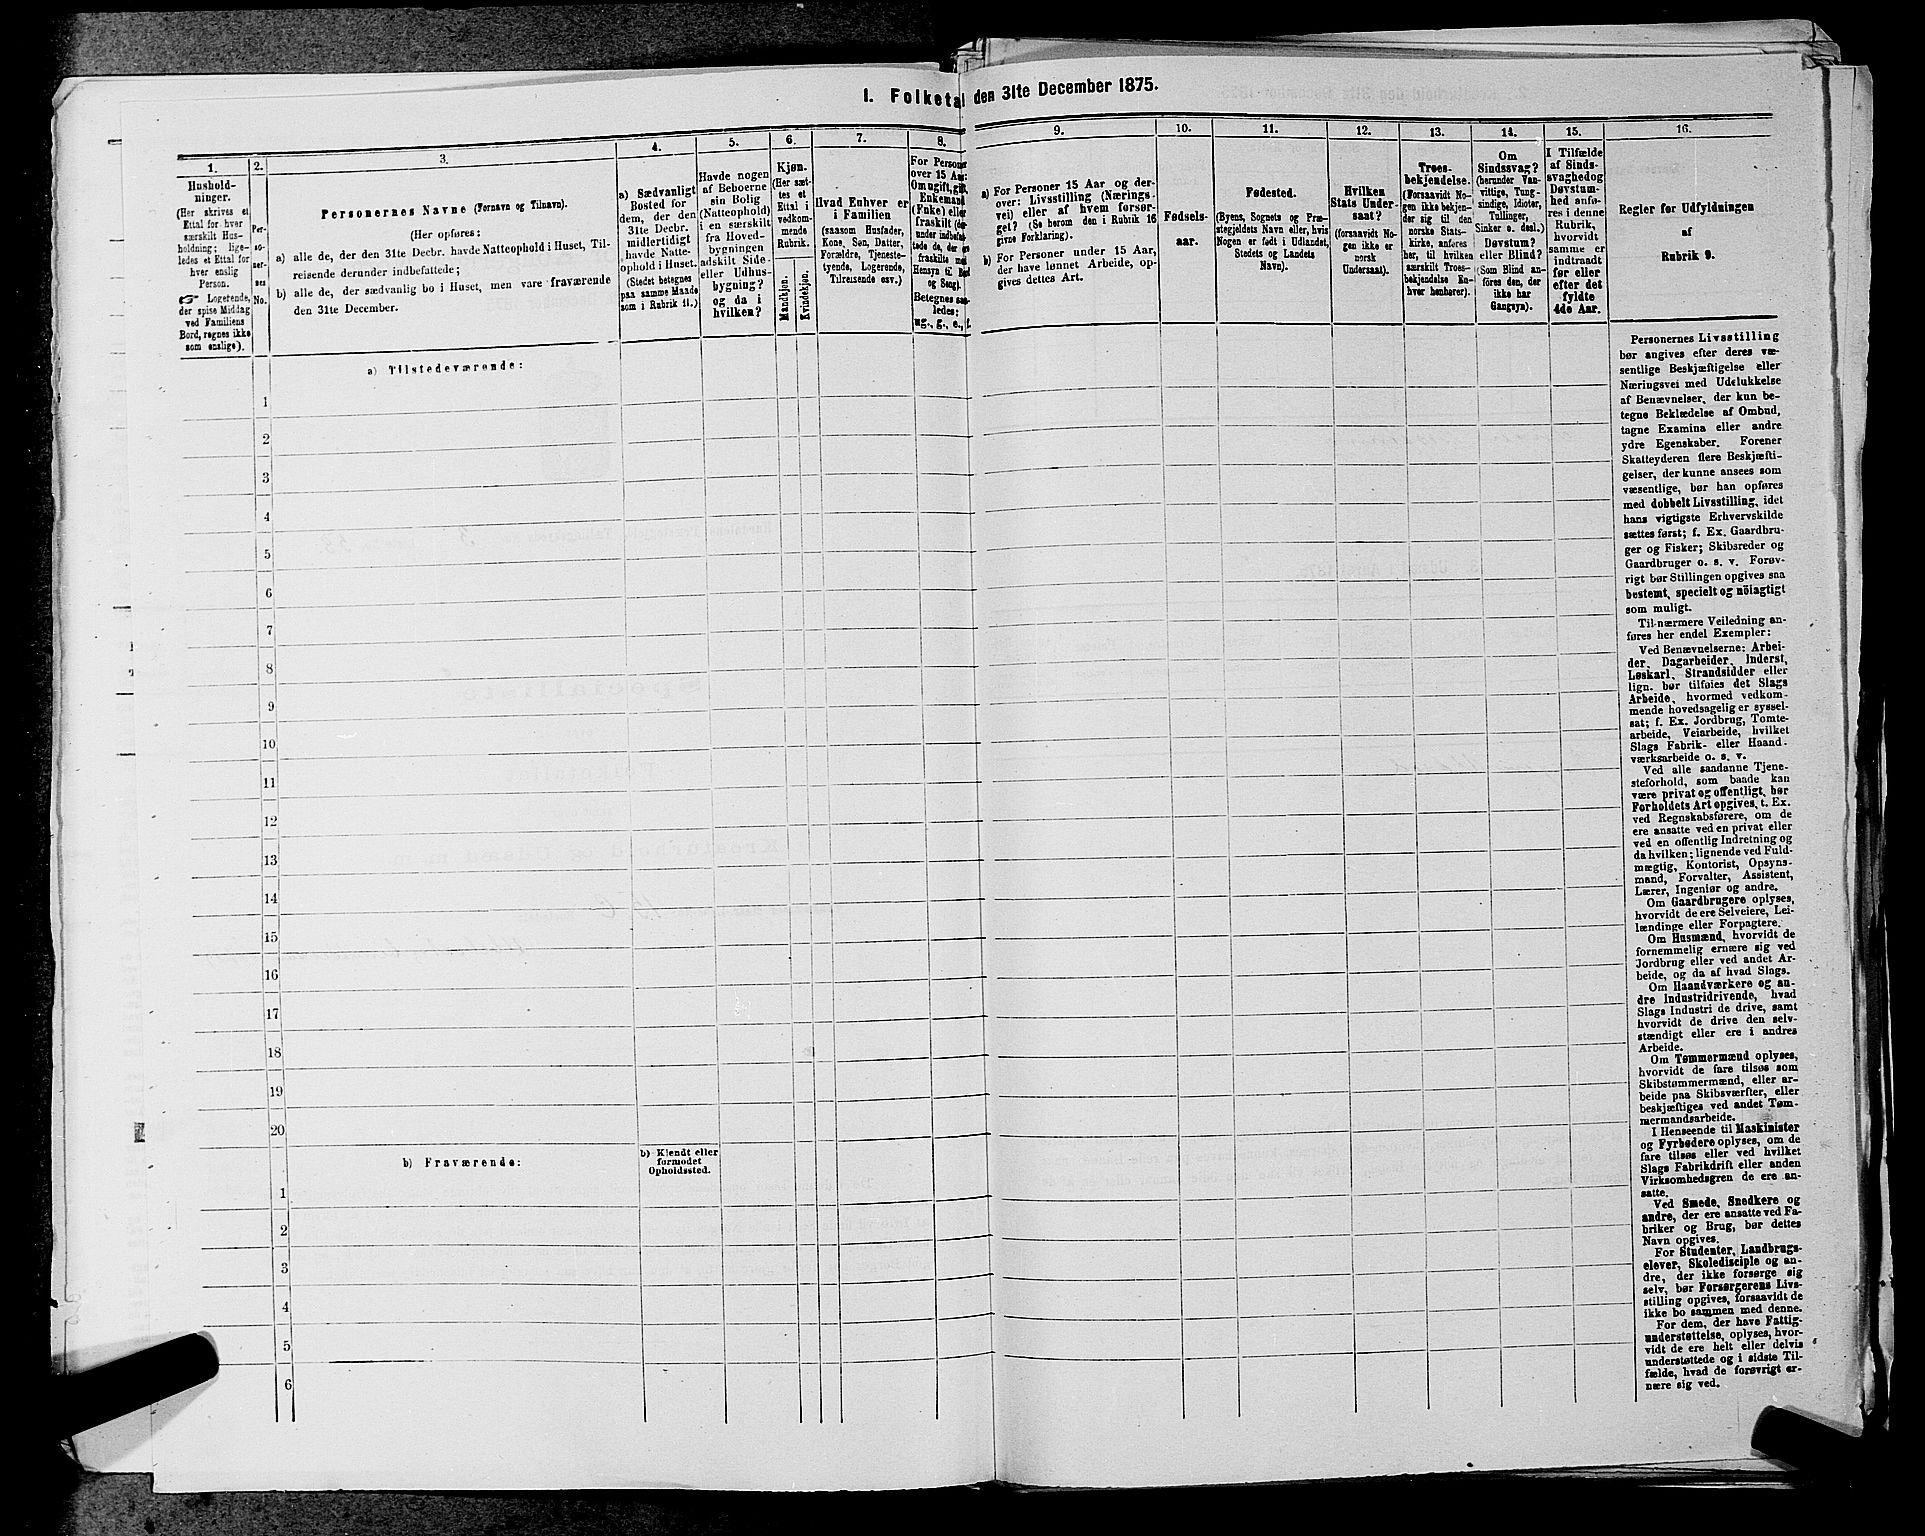 1. Folketal den 31te December 1875.
1.
Hushold-
ninger.
(Her skrives et
Ettal for hver
særskilt Hus-
holdning; lige-
ledes et Ettal for
hver enslig
Person.
Logerende,
der spise Middag
ved Familiens
Bord, regnes ikke
som enslige).
2.
Per-
so-
ner-
nes
No.
3.
Personernes Navne (Fornavn og Tilnavn).
(Her opføres:
a) alle de, der den 31te Decbr. havde Natteophold i Huset, Til-
reisende derunder indbefattede;
b) alle de, der sædvanlig bo i Huset, men vare fraværende
den 31te December.
4.
a) Sædvanligt
Bosted for
dem, der den
31te Decbr.
midlertidigt
havde Natte-
ophold i Huset.
(Stedet betegnes
paa samme Maade
som i Rubrik 11.)
5.
Havde nogen
af Beboerne
sin Bolig
(Natteophold)
i en særskilt
fra Hoved-
bygningen
adskilt Side-
eller Udhus-
bygning?
og da i
hvilken?
6.
Kjøn.
(Her sæt-
tes et
Ettal i
vedkom-
mende
Rubrik.
Mandkjøn.
Kvindekjøn.
7.
Hvad Enhver er
i Familien
(saasom Husfader,
Kone, Søn, Datter,
Forældre, Tjeneste-
tyende, Logerende,
Tilreisende osv.)
8.
For Personer
over 15 Aar:
Om ugift, gift,
Enkemand
(Enke) eller
fraskilt (der-
under indbefat-
tede de, der ere
fraskilte med
Hensyn til Bord
og Seng).
Betegnes saa-
ledes:
ug., g., e., f.
9.
a) For Personer 15 Aar og der-
over: Livsstilling (Nærings-
vei) eller af hvem forsør-
get? (Se herom den i Rubrik 16
givne Forklaring).
b) For Personer under 15 Aar,
der have lønnet Arbeide, op-
gives dettes Art.
10.
Fødsels-
aar.
11.
Fødested.
(Byens, Sognets og Præ-
stegjeldets Navn eller, hvis
Nogen er født i Udlandet,
Stedets og Landets
Navn).
12.
Hvilken
Stats Under-
saat?
(forsaavidt No-
gen ikke er
norsk
Undersaat).
13.
Troes-
bekjendelse.
(Forsaavidt No-
gen ikke bekjen-
der sig til den
norske Stats-
kirke, anføres
her, til hvilken
særskilt Troes-
bekjendelse En-
hver henhører).
14.
Om
Sindssvag?
(herunder Van-
vittige, Tung-
sindige, Idioter,
Tullinger,
Sinker o. desl.)
Døvstum?
eller Blind?
(Som Blind an-
føres den, der
ikke har
Gangsyn).
15.
I Tilfælde
af Sinds-
svaghed og
Døvstum-
hed anfø-
res i denne
Rubrik,
hvorvidt
samme er
indtraadt
før eller
efter det
fyldte
4de Aar.
16.
Regler før Udfyldningen
af
Rubrik 9.
a) Tilstedeværende:
1
2
3
4
5
6
7
8
9
10
11
12
13
14
15
16
17
18
19
20
b) Fraværende:
b) Kjendt eller
formodet
Opholdssted.
1
2
3
4
5
6
Personernes Livsstilling
bør angives efter deres væ-
sentlige Beskjæftigelse eller
Næringsvei med Udelukkelse
af Benævnelser, der kun be-
tegne Beklædelse af Ombud,
tagne Examina eller andre
ydre Egenskaber. Forener
Skatteyderen flere Beskjæfti-
gelser, der kunne ansees som
væsentlige, bør han opføres
med dobbelt Livsstilling, idet
hans vigtigste Erhvervskilde
sættes først; f. Ex. Gaardbru-
ger og Fisker; Skibsreder og
Gaardbruger o. s. v. Forøv-
rigt bør Stillingen opgives saa
bestemt, specielt og nöiagtigt
som muligt.
Til nærmere Veiledning an-
føres her endel Exempler:
Ved Benævnelserne: Arbei-
der, Dagarbeider, Inderst,
Løskarl, Strandsidder eller
lign. bør tilføies det Slags
Arbeide, hvormed vedkom-
mende hovedsagelig er syssel-
sat; f. Ex. Jordbrug, Tomte-
arbeide, Veiarbeide, hvilket
Slags Fabrik- eller Haand-
værksarbeide o. s. v.
Ved alle saadanne Tjene-
steforhold, som baade kan
være privat og offentligt, bør
Forholdets Art opgives, t. Ex.
ved Regnskabsførere, om de
ere ansatte ved en privat eller
ved en offentlig Indretning og
da hvilken; lignende ved Fuld-
mægtig, Kontorist, Opsyns-
mand, Forvalter, Assistent,
Lærer, Ingeniør og andre.
Om Gaardbrugere oplyses,
hvorvidt de ere Selveiere, Lei-
lændinge eller Forpagtere.
Om Husmænd, hvorvidt de
fornemmelig ernære sig ved
Jordbrug eller ved andet Ar-
beide, og da af hvad Slags.
Om Haandværkere og an-
dre Industridrivende, hvad
Slags Industri de drive, samt
hvorvidt de drive den selv-
stændigt eller ere i andres
Arbeide.
Om Tømmermænd oplyses,
hvorvidt de fare tilsøs som
Skibstømmermænd, eller ar-
beide paa Skibsværfter, eller
beskjæftiges ved andet Tøm-
mermandsarbeide.
I Henseende til Maskinister
og Fyrbødere oplyses, om de
fare tilsøs eller ved hvilket
Slags Fabrikdrift eller anden
Virksomhedsgren de ere an-
satte.
Ved Smede, Snedkere og
andre, der ere ansatte ved Fa-
briker og Brug, bør dettes
Navn opgives.
For Studenter, Landbrugs-
elever, Skoledisciple og an-
dre, der ikke forsørge sig
selv, bør Forsørgerens Livs-
stilling opgives, forsaavidt de
ikke bo sammen med denne.
For dem, der have Fattig-
understøttelse, oplyses, hvor-
vidt de ere helt eller delvis
understøttede og i sidste Til-
fælde, hvad de forøvrigt er-
nære sig ved.